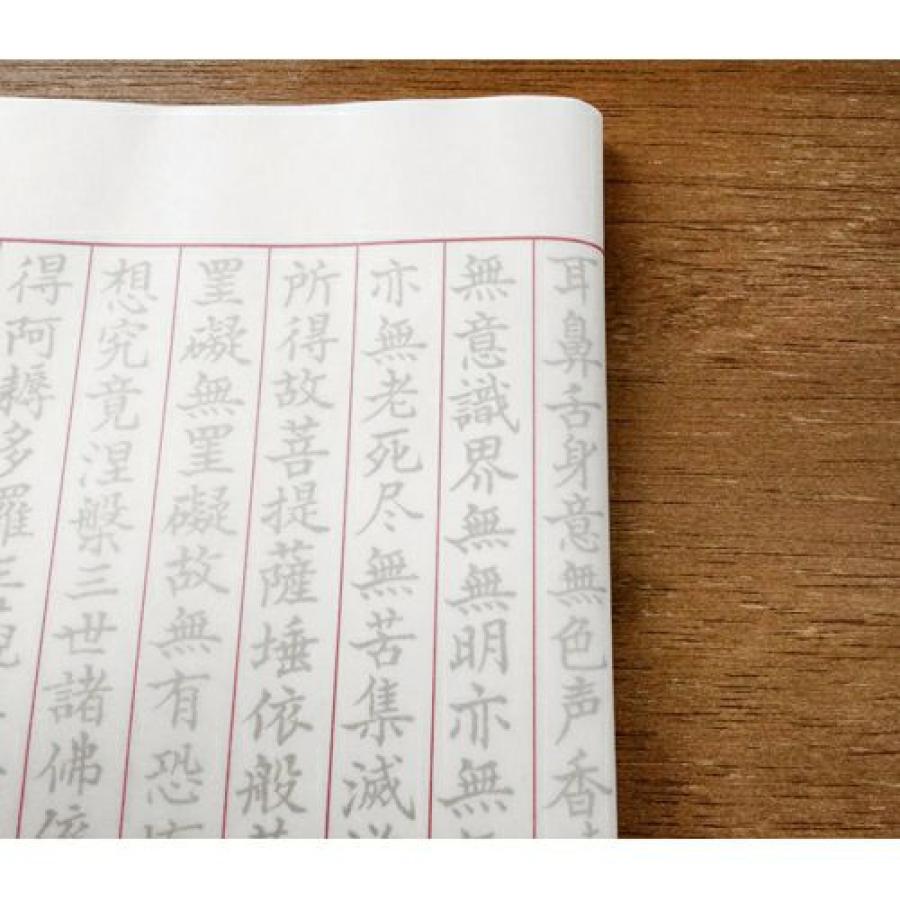 耳鼻舌身意無色声香
無意識界無無明亦無
亦無老死尽無苦集滅
所得故菩提薩埵依般
罣礙無罣礙故無有恐
想究竟涅槃三世諸佛依
得阿耨多羅三